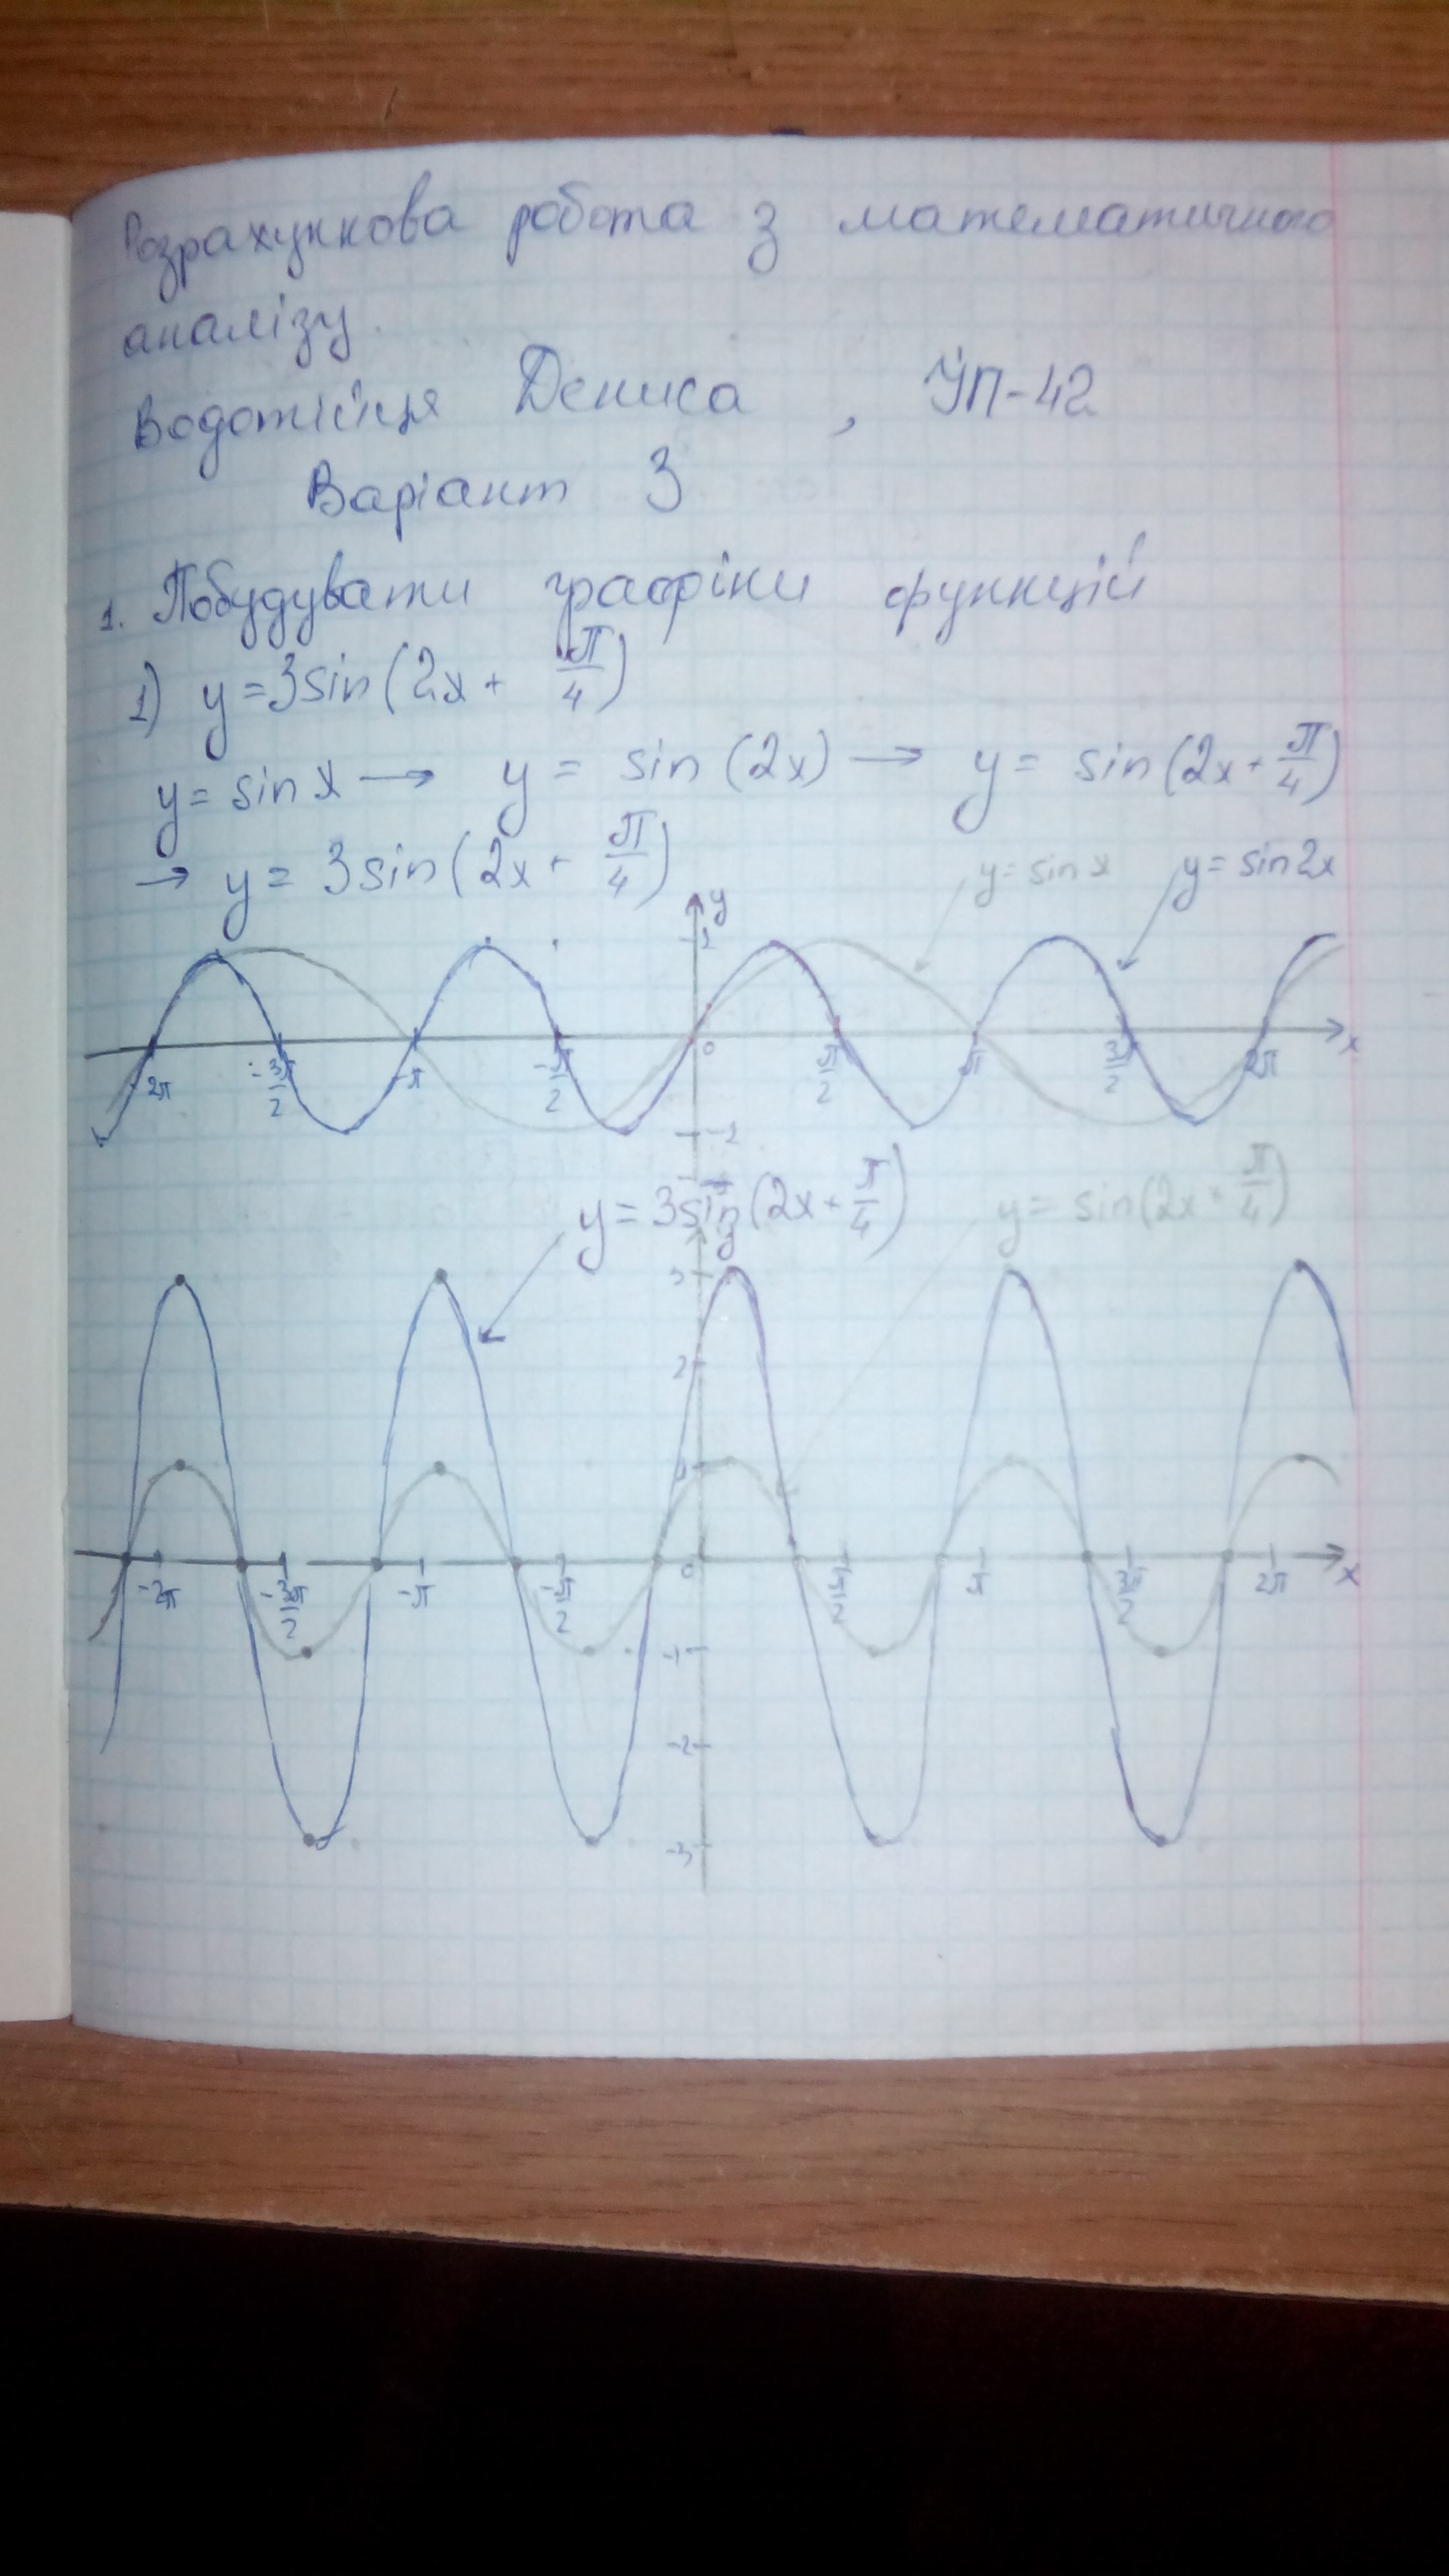 Розрахункова робота з математичного
аналізу.
Водотійця Дениса, УП-42
Варіант 3
1. Побудувати графіки функцій
1) y = 3sin(2x + π/4)
y = sin x → y = sin(2x) → y = sin(2x + π/4)
→ y = 3sin(2x + π/4)
y = sin x y = sin 2x
y
1
-2π -3π/2 -π -π/2 0 π/2 π 3π/2 2π x
-1
y = 3sin(2x + π/4) y = sin(2x + π/4)
y
3
2
1
-2π -3π/2 -π -π/2 0 π/2 π 3π/2 2π x
-1
-2
-3